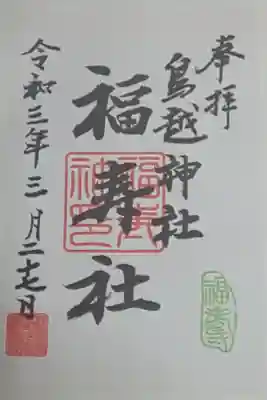 奉拝
鳥越神社
福寿社
令和三年三月二十七日